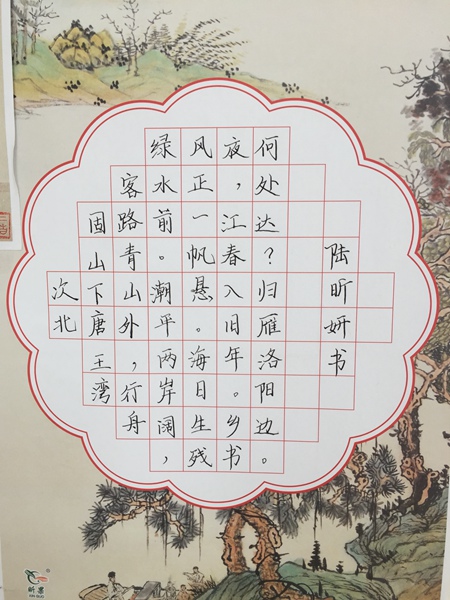 次北
固山下唐王湾
客路青山外，行舟
绿水前。潮平两岸阔，
风正一帆悬。海日生残
夜，江春入旧年。乡书
何处达？归雁洛阳边。
陆昕妍书